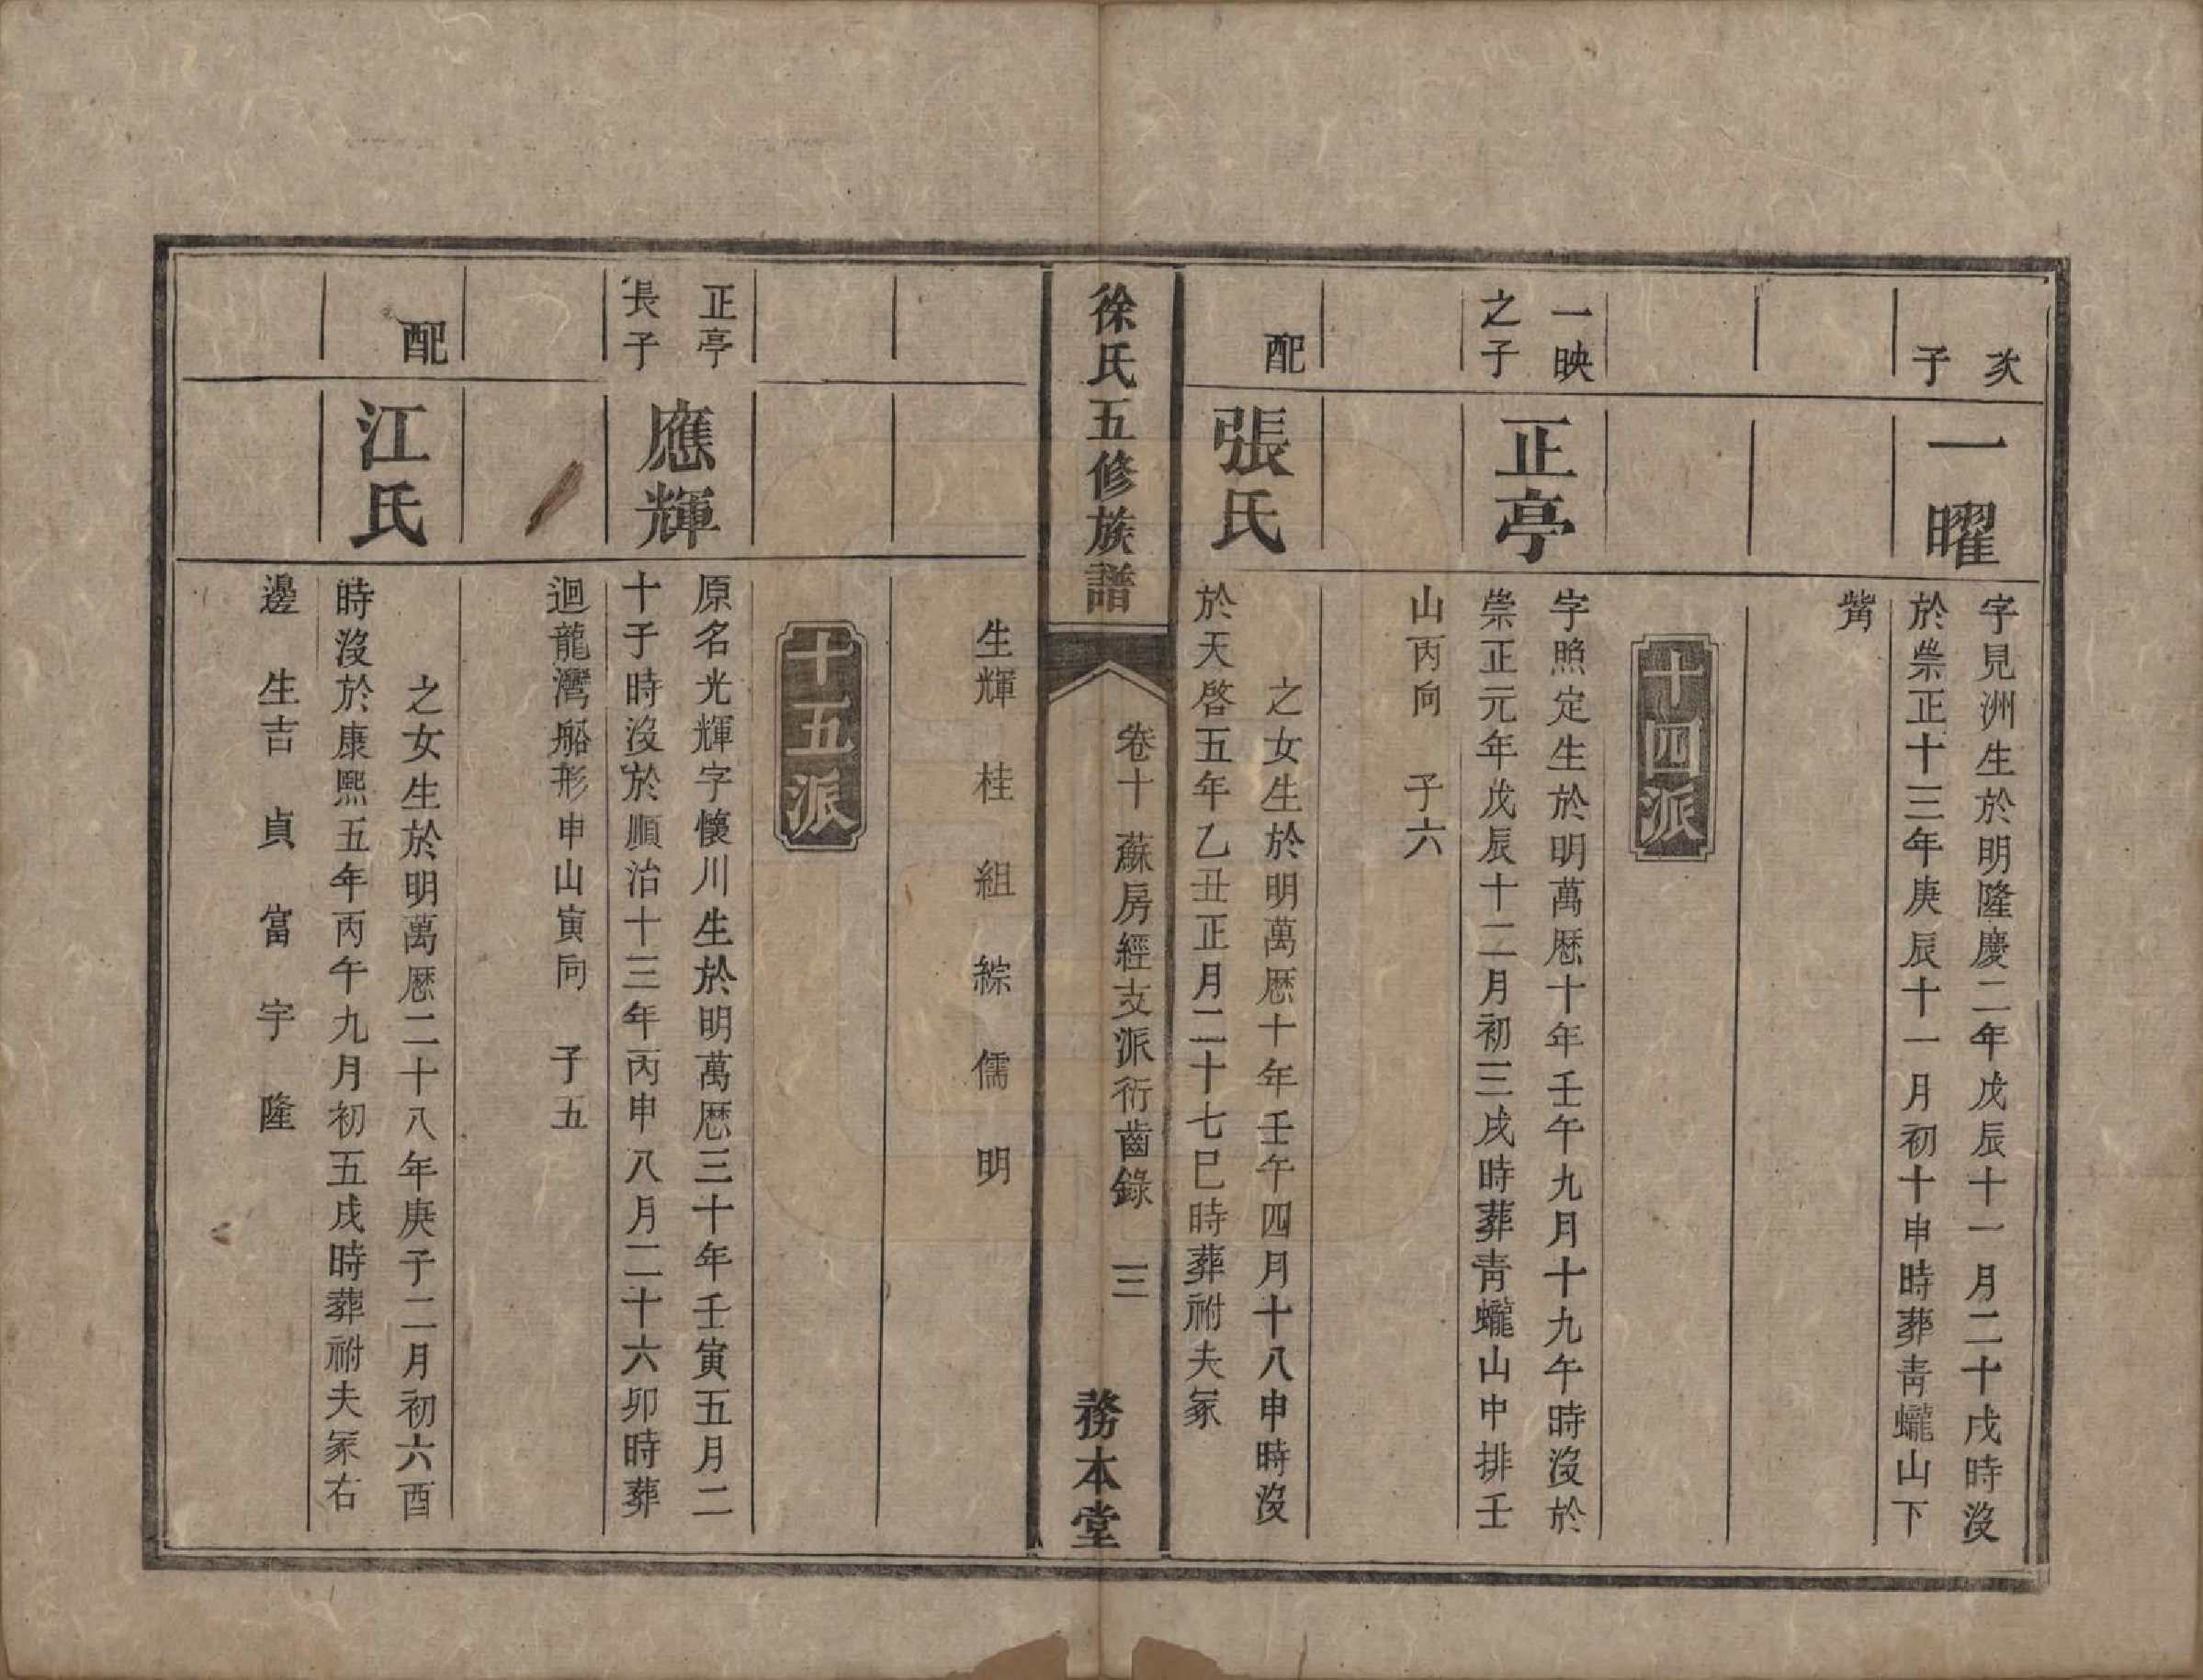 次
子
一曜
字見洲生於明隆慶二年戊辰十一月二十戌時沒
於崇正十三年庚辰十一月初十申時葬青蠬山下
觜
十四派
一映
之子
正亭
字照定生於明萬厯十年壬午九月十九午時沒於
崇正元年戊辰十二月初三戌時葬青蠬山中排壬
山丙向　子六
配
張氏
之女生於明萬厯十年壬午四月十八申時沒
於天啓五年乙丑正月二十七巳時葬祔夫冢
徐氏五修族譜
卷十　蘇房經支派衍齒錄　三
務本堂
生輝　桂　組　綜　儒　明
十五派
正亭
長子
應輝
原名光輝字懷川生於明萬厯三十年壬寅五月二
十子時沒於順治十三年丙申八月二十六卯時葬
迴龍灣船形申山寅向　子五
配
江氏
之女生於明萬厯二十八年庚子二月初六酉
時沒於康熙五年丙午九月初五戌時葬祔夫冢右
邊　生吉　貞　富　宇　隆